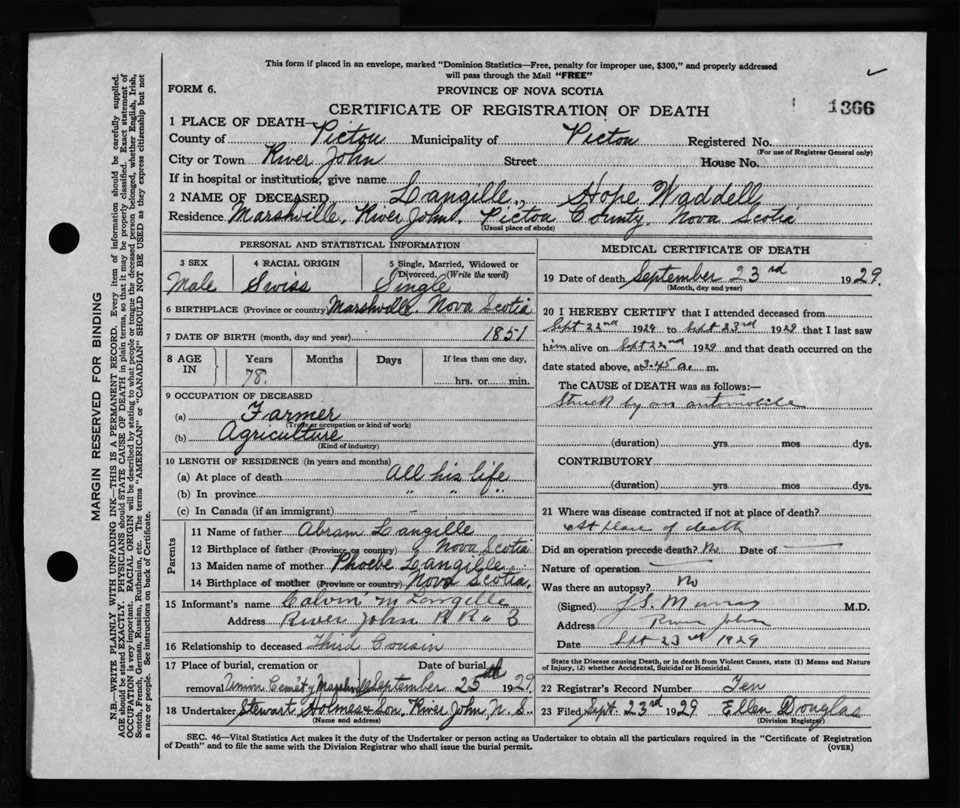 This form if placed in an envelope, marked "Dominion Statistics—Free, penalty for improper use, $300," and properly addressed
will pass through the Mail "FREE"
FORM 6.
PROVINCE OF NOVA SCOTIA
CERTIFICATE OF REGISTRATION OF DEATH
1366
1 PLACE OF DEATH—
County of Pictou Municipality of Pictou Registered No.
(For use of Registrar General only)
City or Town River John Street House No.
If in hospital or institution, give name
2 NAME OF DECEASED Langille, Hope Waddell
Residence Marshville, River John, Pictou County, Nova Scotia
(Usual place of abode)
PERSONAL AND STATISTICAL INFORMATION
3 SEX 4 RACIAL ORIGIN 5 Single, Married, Widowed or
Divorced. (Write the word)
Male Swiss Single
6 BIRTHPLACE (Province or country) Marshville, Nova Scotia
7 DATE OF BIRTH (month, day and year) 1851
8 AGE IN Years Months Days If less than one day,
78. hrs. or min.
9 OCCUPATION OF DECEASED
(a) Farmer
(Trade or occupation or kind of work)
(b) Agriculture
(Kind of industry)
10 LENGTH OF RESIDENCE (in years and months)
(a) At place of death All his life
(b) In province " " "
(c) In Canada (if an immigrant)
Parents
11 Name of father Abram Langille
12 Birthplace of father (Province or country) Nova Scotia
13 Maiden name of mother Phoebe Langille
14 Birthplace of mother (Province or country) Nova Scotia,
15 Informant's name Calvin M Langille
Address River John R R 3
16 Relationship to deceased Third Cousin
17 Place of burial, cremation or Date of burial
removal Union Cemet'y Marshville September 25th 1929
18 Undertaker Stewart Holmes & Son, River John N. S.
(Name and address)
MEDICAL CERTIFICATE OF DEATH
19 Date of death September 23rd 1929.
(Month, day and year)
20 I HEREBY CERTIFY that I attended deceased from
Sept 22nd 1929 to Sept 23rd 1929 that I last saw
him alive on Sept 22nd 1929 and that death occurred on the
date stated above, at 3.45 a. m.
The CAUSE OF DEATH was as follows:—
Struck by an automobile
(duration) yrs mos dys.
CONTRIBUTORY
(duration) yrs mos dys.
21 Where was disease contracted if not at place of death?
At place of death
Did an operation precede death? No Date of
Nature of operation
Was there an autopsy? No
(Signed) J S. Murray M.D.
Address River John
Date Sept 23rd 1929
State the Disease causing Death, or in death from Violent Causes, state (1) Means and Nature
of Injury, (2) whether Accidental, Suicidal or Homicidal.
22 Registrar's Record Number Ten
23 Filed Sept. 23rd 1929 Ellen Douglas
(Division Registrar)
SEC. 46—Vital Statistics Act makes it the duty of the Undertaker or person acting as Undertaker to obtain all the particulars required in the "Certificate of Registration
of Death" and to file the same with the Division Registrar who shall issue the burial permit.
(OVER)
MARGIN RESERVED FOR BINDING
N.B.—WRITE PLAINLY WITH UNFADING INK—THIS IS A PERMANENT RECORD. Every item of information should be carefully supplied.
AGE should be stated EXACTLY. PHYSICIANS should STATE CAUSE OF DEATH in plain terms, so that it may be properly classified. Exact statement of
OCCUPATION is very important. RACIAL ORIGIN will be described by stating to what people or tongue the deceased person belonged, whether English, Irish,
Scotch, French, German, Russian, Ruthenian, etc. The terms "AMERICAN" or "CANADIAN" SHOULD NOT BE USED as they express citizenship but not
a race or people. See instructions on back of Certificate.